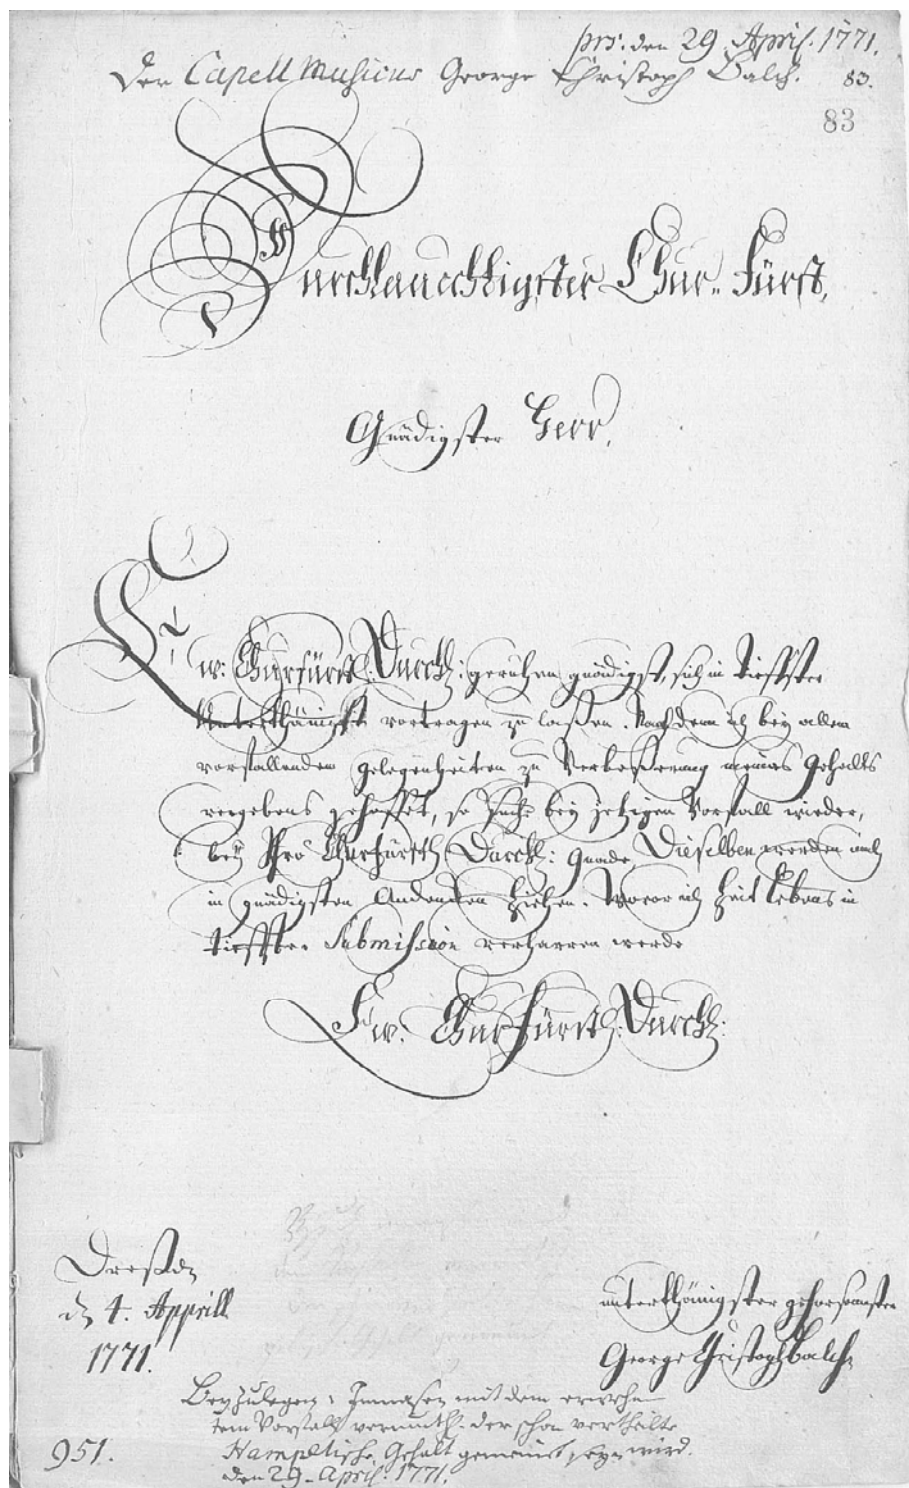 prs: den 29. April. 1771.
Der Capell Musicus George Christoph Balch. 83.
83
Durchlauchtigster Chur-Fürst,
Gnädigster Herr,
Ew: Churfürstl: Durchl: geruhen gnädigst, sich in tieffster
Unterthänigkeit vortragen zu laßen. Nachdem ich bey allen
vorfallenden Gelegenheiten zu Verbeßerung meines Gehalts
vergebens gehoffet, so suche bey jetzigen Vorfall wieder,
bey Ihro Churfürstl: Durchl: Gnade, Dieselben werden mich
in gnädigsten Andencken ziehen. Wovor ich Zeit Lebens in
tieffster Submission verharren werde
Ew: Churfürstl: Durchl:
Dreßdn
dn 4. Apprill
1771.
unterthänigster gehorsamster
George Christoph Balch
Beyzulegen, Immaßen mit dem erwehn-
tem Vorfall vermuthl: der schon vertheilte
951. Hampelische Gehalt gemeinet seyn wird.
den 29. April: 1771.